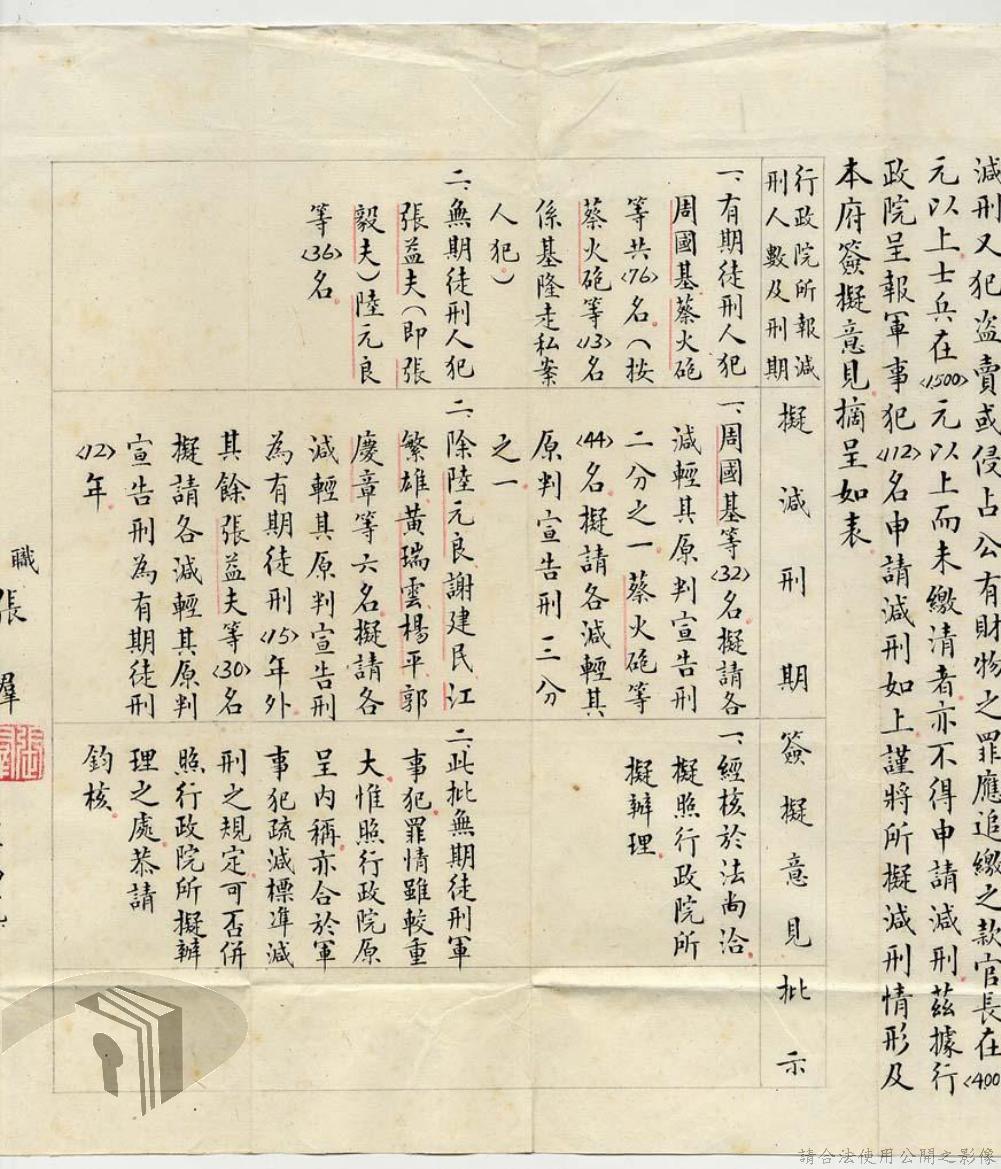 減刑又犯盜賣或侵占公有財物之罪應追繳之款官長在<400>
元以上士兵在<1500>元以上而未繳清者亦不得申請減刑茲據行
政院呈報軍事犯<112>名申請減刑如上謹將所擬減刑情形及
本府簽擬意見摘呈如表
行政院所報減
刑人數及刑期
一、有期徒刑人犯
周國基蔡火砲
等共<76>名。(按
蔡火砲等<13>名
係基隆走私案
人犯)
二、無期徒刑人犯
張益夫(即張
毅夫)陸元良
等<36>名。
擬減刑期
一、周國基等<32>名擬請各
減輕其原判宣告刑
二分之一。蔡火砲等
<44>名。擬請各減輕其
原判宣告刑三分
之一
二、除陸元良謝建民江
繁雄黃瑞雲楊平郭
慶章等六名擬請各
減輕其原判宣告刑
為有期徒刑<15>年外。
其餘張益夫等<30>名
擬請各減輕其原判
宣告刑為有期徒刑
<12>年。
簽擬意見
一、經核於法尚洽。
擬照行政院所
擬辦理。
二、此批無期徒刑軍
事犯罪情雖較重
大。惟照行政院原
呈內稱亦合於軍
事犯疏減標準減
刑之規定。可否併
照行政院所擬辦
理之處。恭請
鈞核。
批示
職
張
羣
請合法使用公開之影像